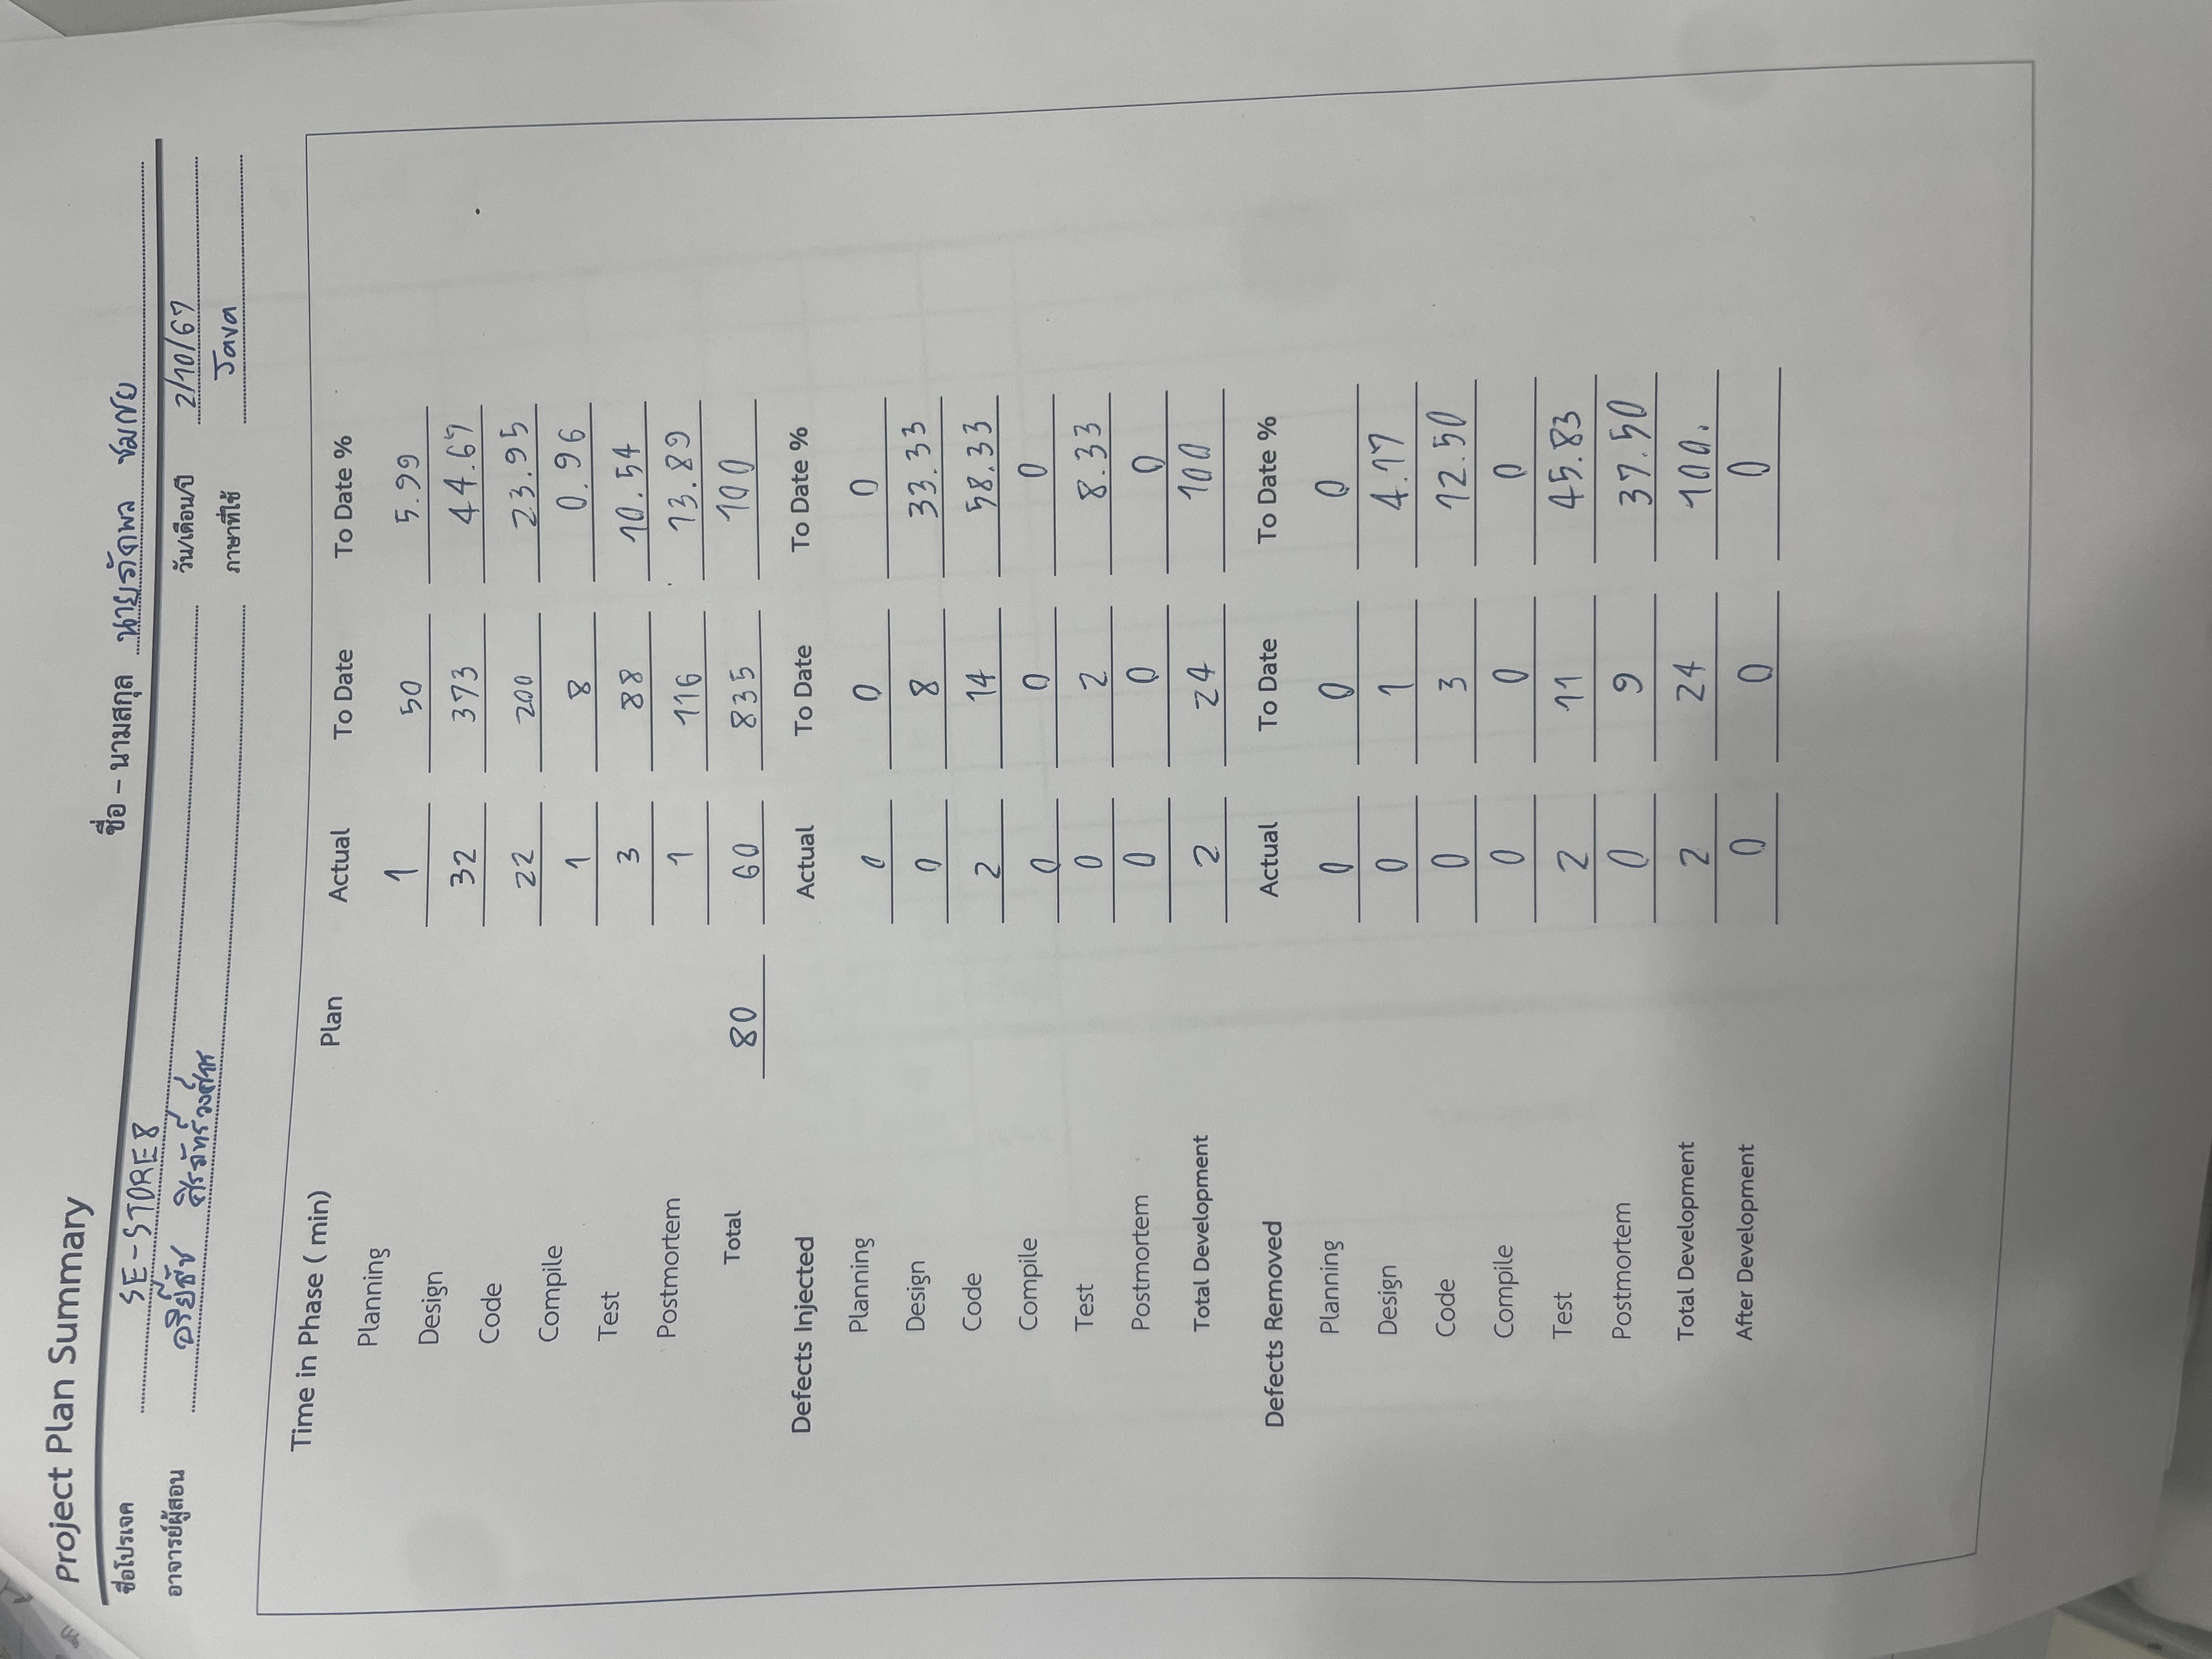 Project Plan Summary
ชื่อ – นามสกุล นายภัคพล
ชื่อโปรเจค SE-STORE8
อาจารย์ผู้สอน
วัน/เดือน/ปี 2/10/67
ภาษาที่ใช้ Java
Time in Phase ( min) Plan Actual To Date To Date %
Planning 1 50 5.99
Design 32 373 44.67
Code 22 200 23.95
Compile 1 8 0.96
Test 3 88 10.54
Postmortem 1 116 13.89
Total 80 60 835 100
Defects Injected Actual To Date To Date %
Planning 0 0 0
Design 0 8 33.33
Code 2 14 58.33
Compile 0 0 0
Test 0 2 8.33
Postmortem 0 0 0
Total Development 2 24 100
Defects Removed Actual To Date To Date %
Planning 0 0 0
Design 0 1 4.17
Code 0 3 12.50
Compile 0 0 0
Test 2 11 45.83
Postmortem 0 9 37.50
Total Development 2 24 100.
After Development 0 0 0